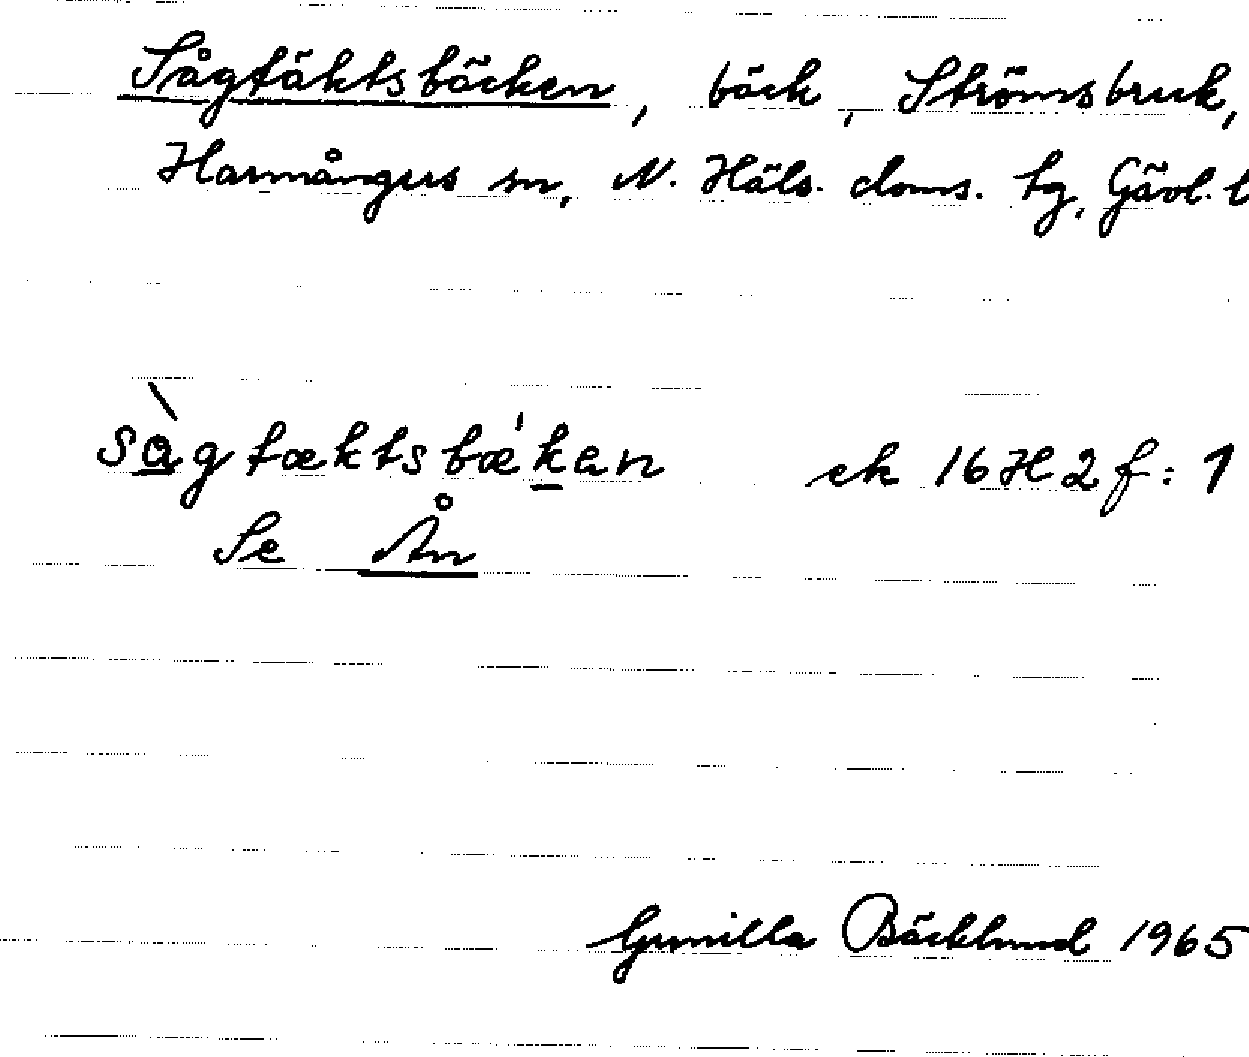 Sågtäktsbäcken, bäck, Strömsbruk,
Harmångers sn, N. Häls. doms. tg, Gävl. l
sàgtæktsbæ'ken ek 16H2f:1
Se Ån
Gunilla Bäcklund 1965